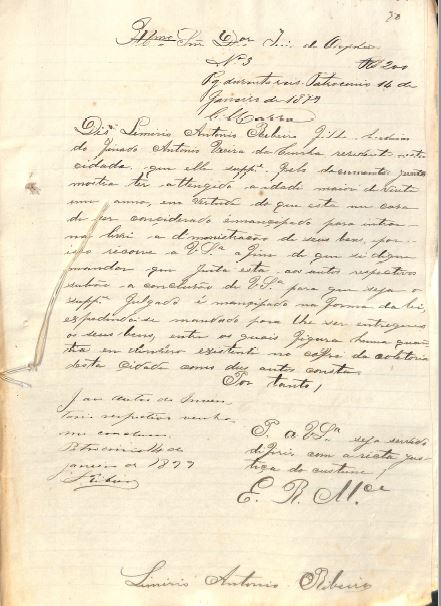 30
Illmo Snr Dor J. de Orphãos
Nº 3 Rs 200
Pg. duzentos reis. Patrocinio 14 de
Janeiro de 1899
Diz Limirio Antonio Ribeiro, filho
do finado Antonio Vieira da Cunha residente nesta
cidade, que elle suppe. pelo documento junto
mostra ter attengido a idade maior de vinte
um annos, em vertude do que esta no caso
de ser conciderado emancipado para entrar
na livre administracão de seus bens, por
isso recorre a V.Sª afim de que se digne
mandar que junta esta aos autos respectivos
subão a conclusão de V.Sª para que seja o
suppe. julgado emancipado na forma da lei,
expedindo-se mandado para lhe ser entregues
os seus bens, entre os quais figura huma quan
tia em dinheiro existente no cofre da coletoria
desta cidade como dos autos consta.
Por tanto,
J. aos autos de inven
tario respectivo venhão
me conclusos.
Patrocinio 14 de
janeiro de 1899
P. a V.Sª seja servido
diferir com a recta jus
tiça do custume,
E. R. M.ce
Limirio Antonio Ribeiro